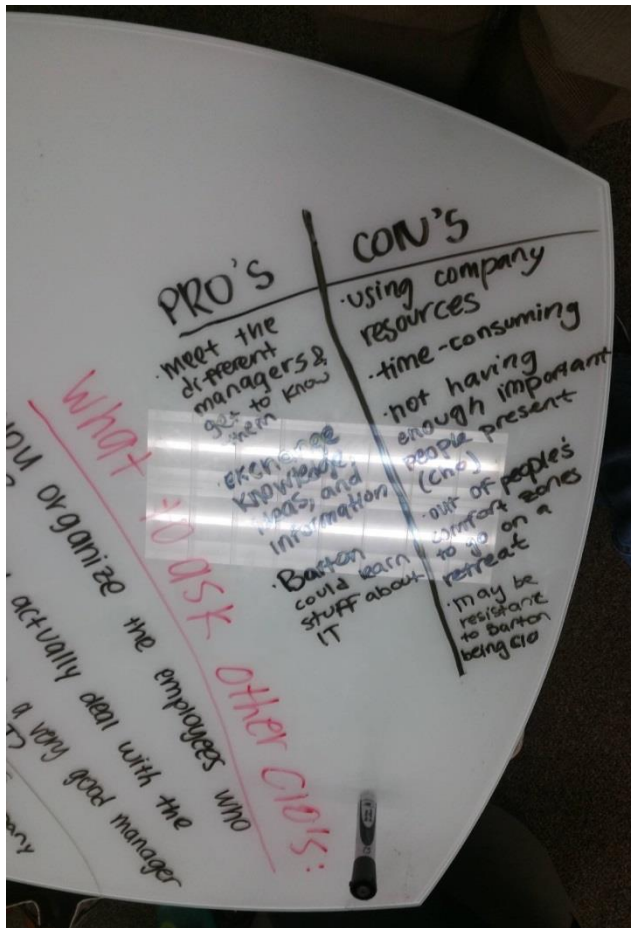 PRO'S
· meet the
different
managers &
get to know
them
· exchange
knowledge,
ideas, and
information
· Barton
could learn
stuff about
IT
CON'S
· using company
resources
· time-consuming
· not having
enough important
people present
(cno)
· out of people's
comfort zones
to go on a
retreat
· may be
resistant
to Barton
being CIO
What to ask other CIO's:
you organize the employees who
actually deal with the
a very good manager